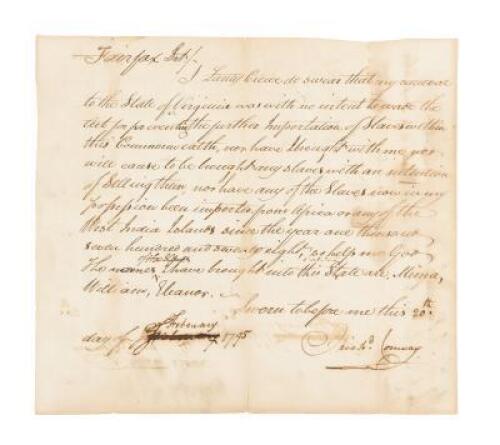 Fairfax Sct/.
I James Crease do swear that my removal
to the State of Virginia was with no intent to evade the
act for preventing the further Importation of Slaves within
this Commonwealth, nor have I brought with me nor
will cause to be brought any slaves with an intention
of Selling them, nor have any of the Slaves now in my
possession been imported from Africa or any of the
West India Islands since the year one thousand
seven hundred and seventy eight, so help me God
The names of the Slaves I have brought into this State are, Mima,
William, Eleanor.
Sworn to before me this 20th
day of February 1795
Richd. Conway